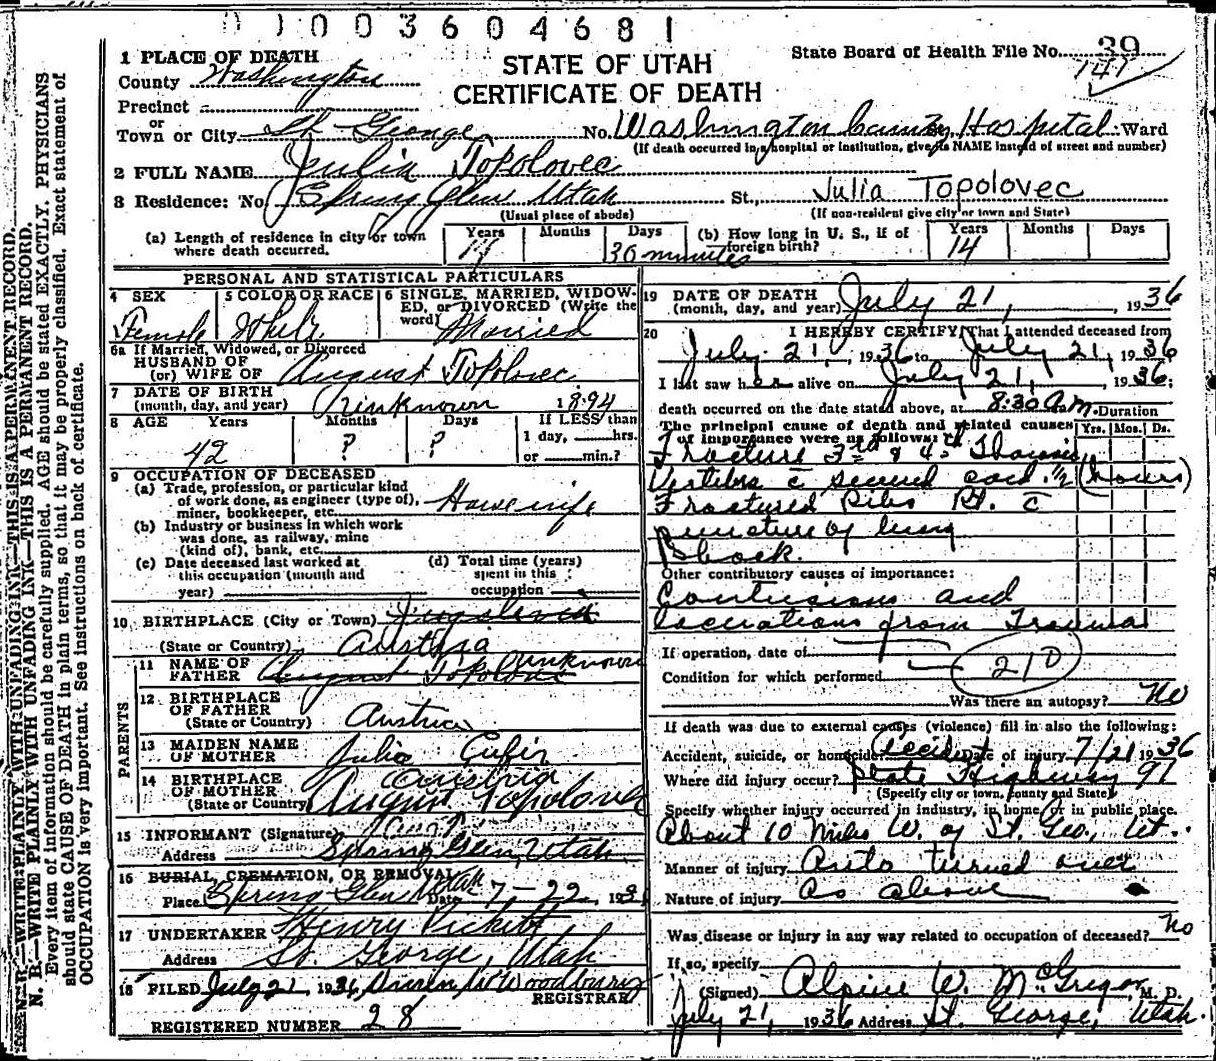 1003604681
STATE OF UTAH
CERTIFICATE OF DEATH
State Board of Health File No. 39
141
1 PLACE OF DEATH
County Washington
Precinct
or
Town or City St. George No. Washington County Hospital Ward
(If death occurred in a hospital or institution, give its NAME instead of street and number)
2 FULL NAME Julia Topolovec
3 Residence: No. Spring Glen Utah St., Julia Topolovec
(Usual place of abode) (If non-resident give city or town and State)
(a) Length of residence in city or town where death occurred. Years Months Days 30 minutes
(b) How long in U. S., if of foreign birth? Years 14 Months Days
PERSONAL AND STATISTICAL PARTICULARS
4 SEX Female
5 COLOR OR RACE White
6 SINGLE, MARRIED, WIDOWED, or DIVORCED (Write the word) Married
6a If Married, Widowed, or Divorced
HUSBAND OF
(or) WIFE OF August Topolovec
7 DATE OF BIRTH
(month, day, and year) Unknown 1894
8 AGE Years 42 Months ? Days ? If LESS than 1 day, hrs. or min.?
9 OCCUPATION OF DECEASED
(a) Trade, profession, or particular kind of work done, as engineer (type of), miner, bookkeeper, etc. Housewife
(b) Industry or business in which work was done, as railway, mine (kind of), bank, etc.
(c) Date deceased last worked at this occupation (month and year)
(d) Total time (years) spent in this occupation
10 BIRTHPLACE (City or Town)
(State or Country) Austria
PARENTS
11 NAME OF FATHER August Topolovec unknown
12 BIRTHPLACE OF FATHER
(State or Country) Austria
13 MAIDEN NAME OF MOTHER Julia
14 BIRTHPLACE OF MOTHER
(State or Country) Austria
15 INFORMANT (Signature) August Topolovec
Address Spring Glen, Utah
16 BURIAL, CREMATION, OR REMOVAL
Place Spring Glen Utah Date 7-22, 193
17 UNDERTAKER Henry Pickett
Address St. George, Utah
18 FILED July 21, 1936 Woodbury
REGISTRAR
REGISTERED NUMBER 28
19 DATE OF DEATH
(month, day, and year) July 21, 1936
20 I HEREBY CERTIFY, That I attended deceased from
July 21, 1936 to July 21, 1936
I last saw her alive on July 21, 1936;
death occurred on the date stated above, at 8:30 A.m. Duration
The principal cause of death and related causes of importance were as follows: Yrs. Mos. Ds.
Fracture 3rd & 4th Thoracic
Vertibra c severed cord ½ (hours)
Fractured Ribs Rt. c
puncture of lung
Shock.
Other contributory causes of importance:
Contusions and
lacerations from Trauma
If operation, date of
Condition for which performed
210
Was there an autopsy? No
If death was due to external causes (violence) fill in also the following:
Accident, suicide, or homicide? Accident Date of injury 7/21 1936
Where did injury occur? State Highway 91
(Specify city or town, county and State)
Specify whether injury occurred in industry, in home, or in public place.
About 10 miles W. of St. Geo, Ut.
Manner of injury Auto turned over
Nature of injury As above
Was disease or injury in any way related to occupation of deceased? No
If so, specify
(Signed) Alpine W. McGregor, M. D.
July 21, 1936 Address St. George, Utah.
N. B.—WRITE PLAINLY WITH UNFADING INK—THIS IS A PERMANENT RECORD.
Every item of information should be carefully supplied. AGE should be stated EXACTLY. PHYSICIANS
should state CAUSE OF DEATH in plain terms, so that it may be properly classified. Exact statement of
OCCUPATION is very important. See instructions on back of certificate.